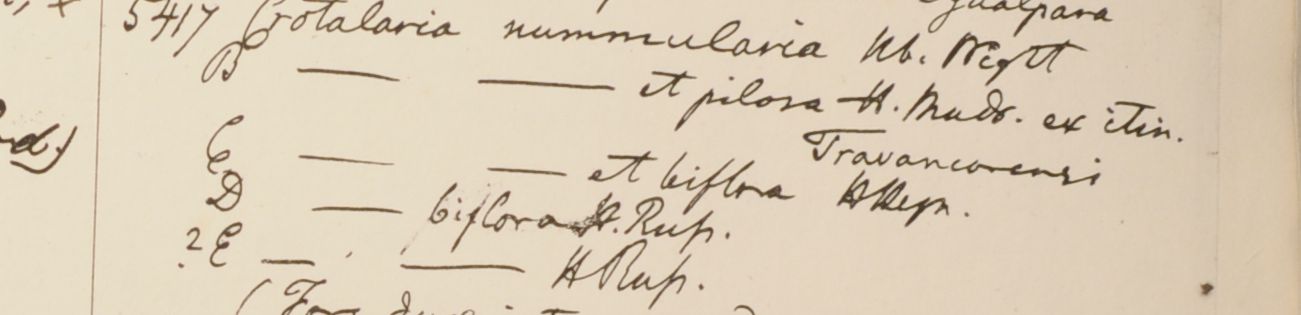 Goalpara
5417 Crotalaria nummularia Hb. Wight
B — — et pilosa H. Madr. ex itin.
Travancorensi
C — — et biflora H Heyn.
D — biflora H. Rup.
? E — — H Rup.